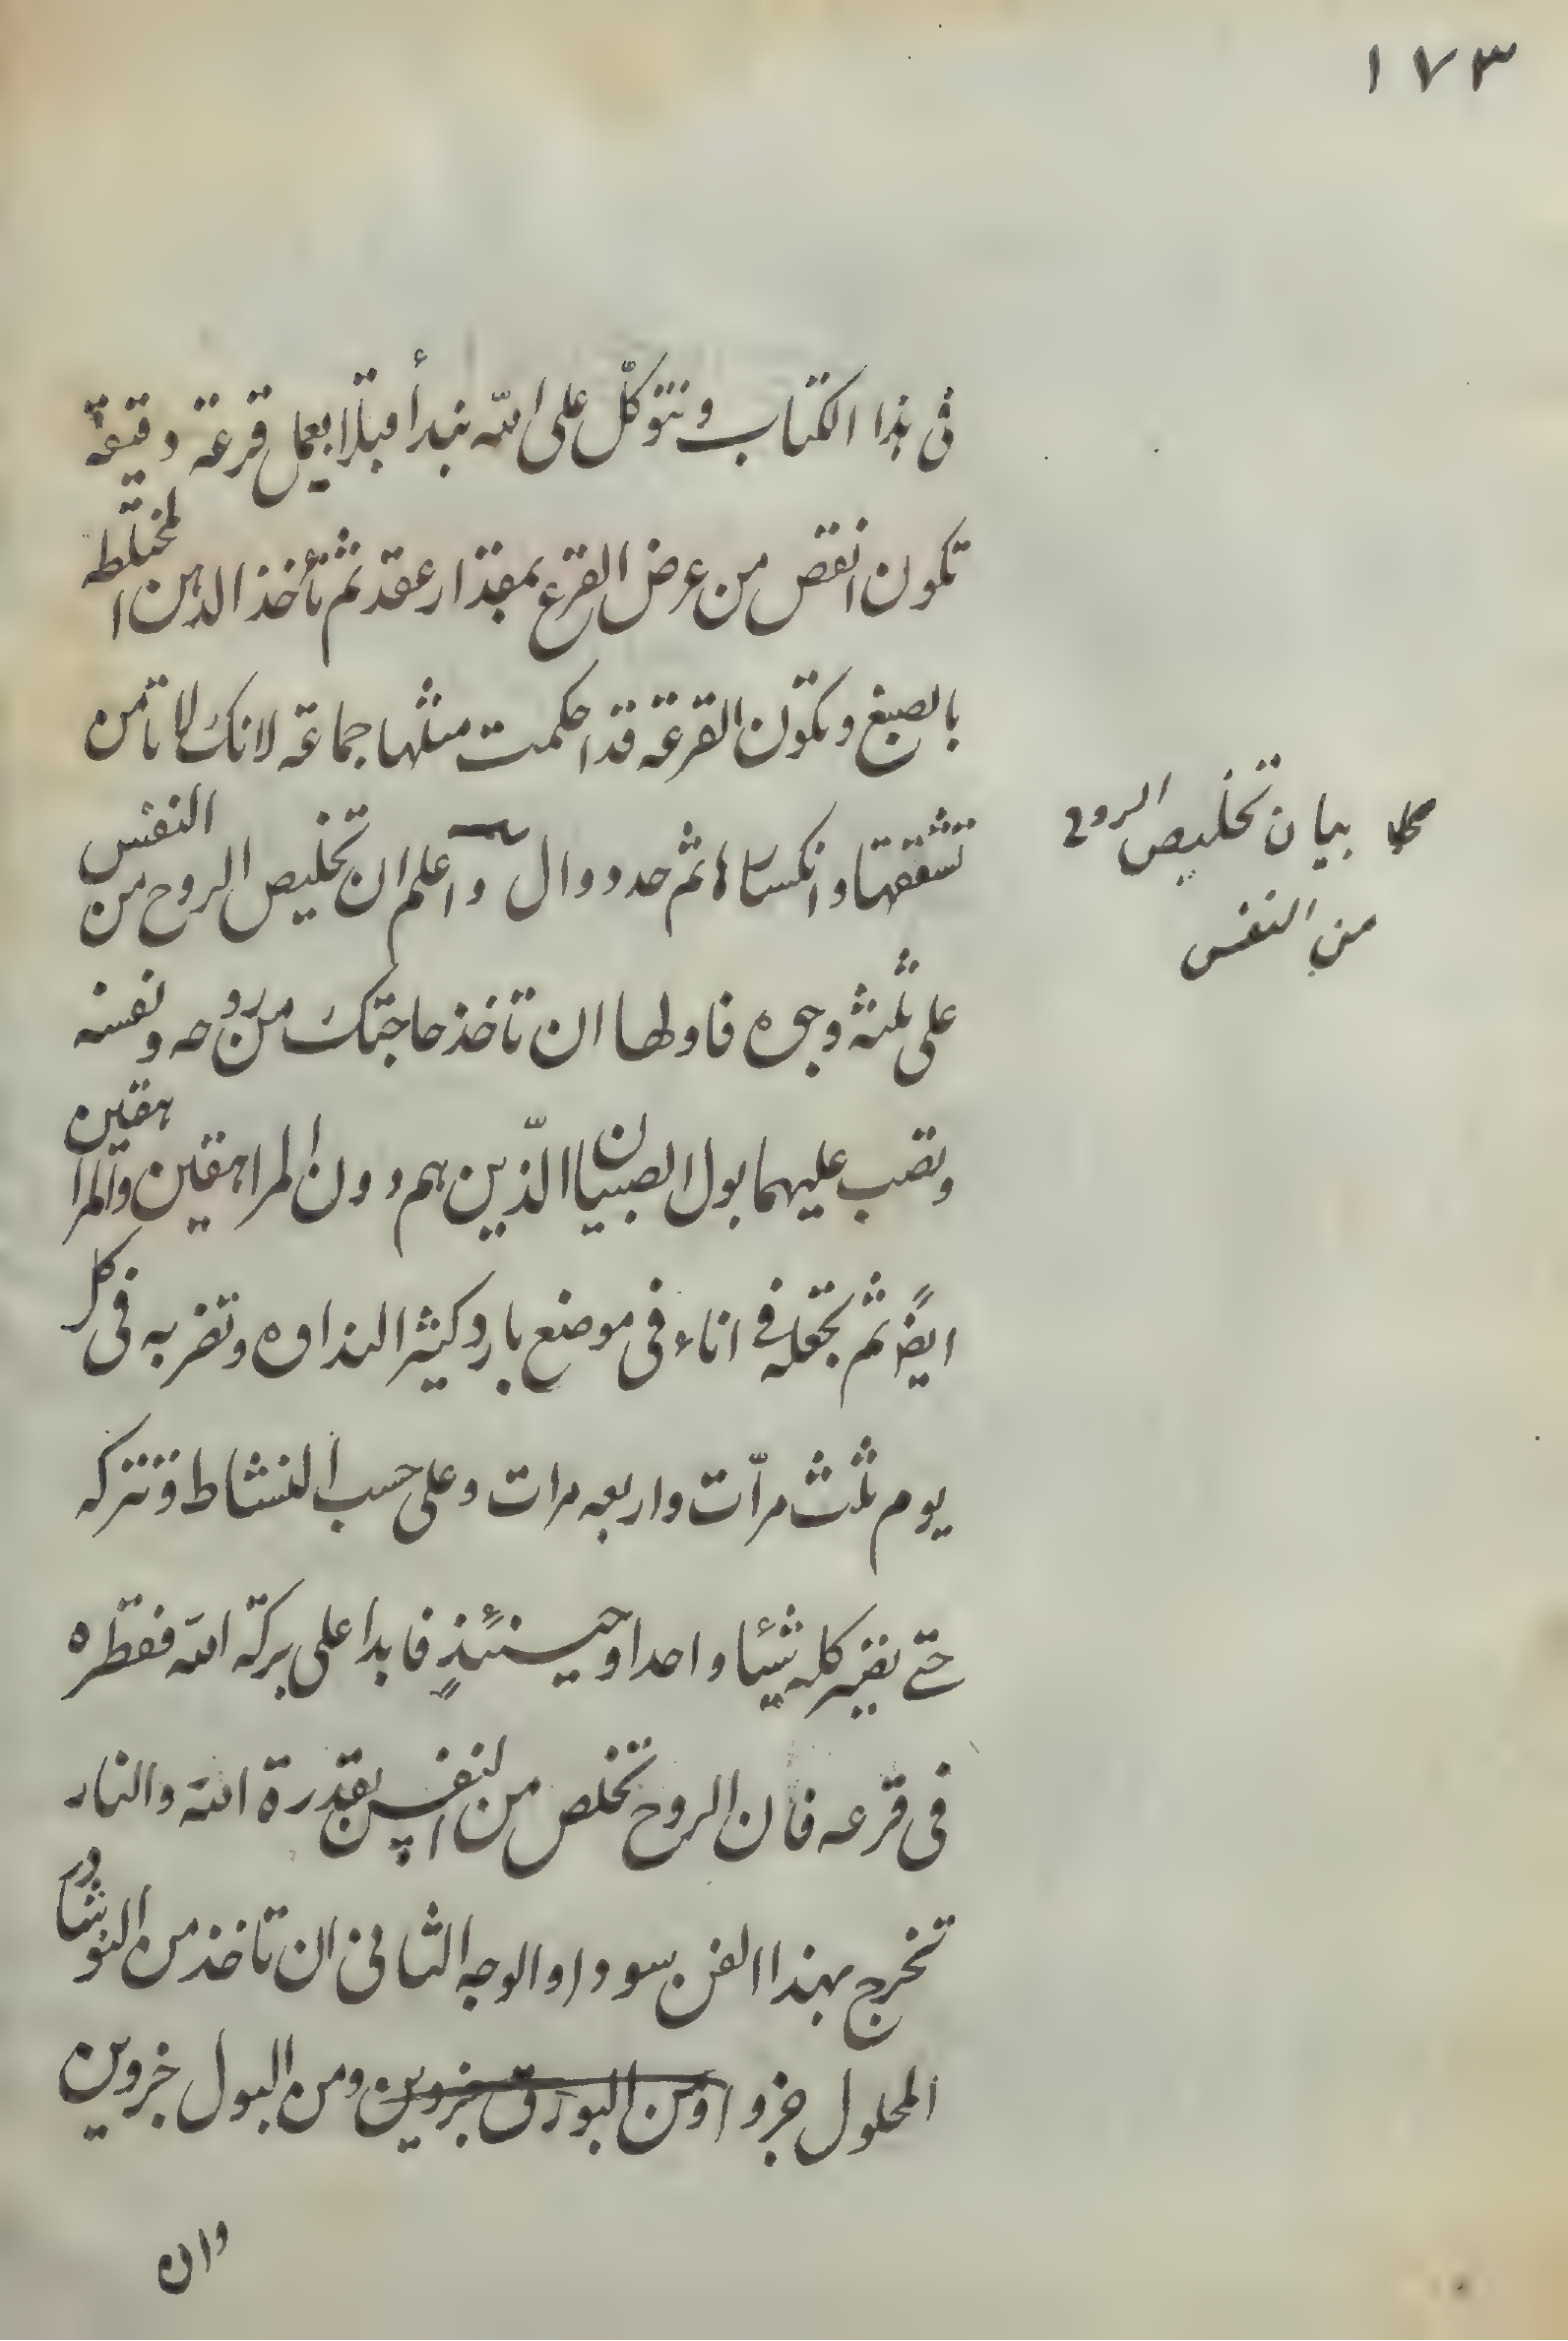 ١٧٣
فى هذا الكتاب ونتوكّل على الله نبدأ قبلا بعمل قرعة دقيقة
تكون انقص من عرض القرع بمقدار عقد ثم تأخذ الدهن المختلطه
بالصبغ وتكون القرعة قد احكمت مثلها جماعة لانك لا تأمن
تشققها وانكسارها ثم حدد وال واعلم ان تخليص الروح من النفس
على ثلثة وجوه فاولها ان تاخذ حاجتك من روحه ونفسه
وتصب عليهما بول الصبيان الذّين هم دون المراهقين والمراهقين
ايضًا ثم تجعله فى اناء فى موضع بارد كثير النداوه وتضربه فى كل
يوم ثلث مرّات واربعه مرات وعلى حسب النشاط وتتركه
حتى يغير كله شيئا واحدا وحينئذٍ فابدا على بركة الله فقطره
فى قرعه فان الروح تخلص من النفس بقدرة الله والنار
تخرج بهذا الفن سودا والوجه الثانى ان تاخذ من النوشادر
المحلول جزوا ومن البورق جزوين ومن البول جزوين
وان
بيان تخليص الروح
من النفس